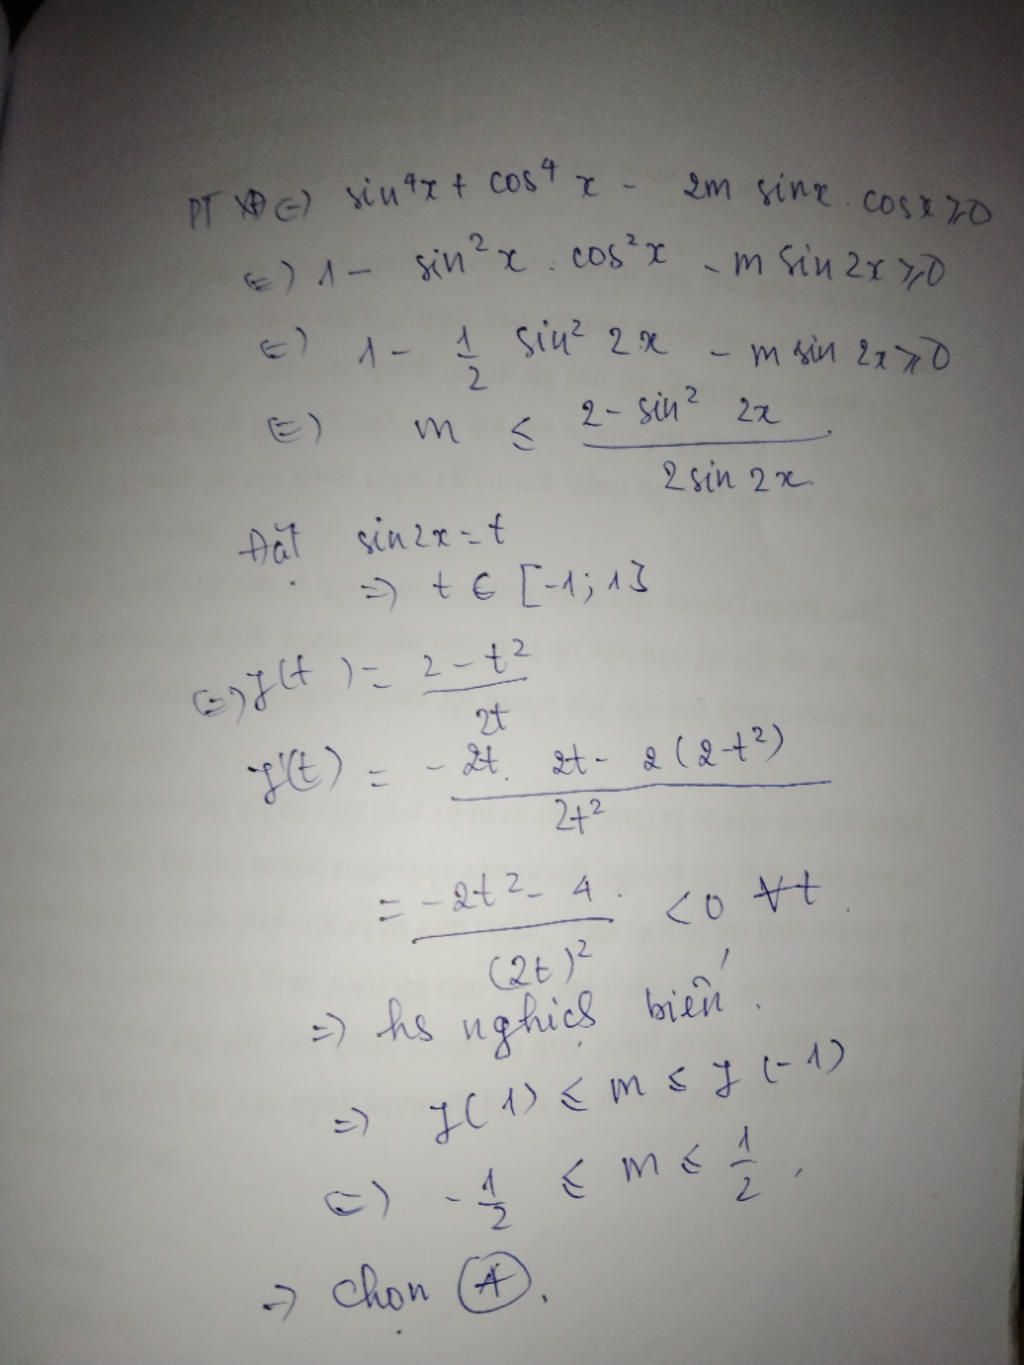 PT XĐ (=) sin⁴x + cos⁴ x - 2m sinx . cosx ⩾ 0
(=) 1 - sin²x . cos²x - m sin 2x ⩾ 0
(=) 1 - 1/2 sin² 2x - m sin 2x ⩾ 0
(=) m ≤ (2 - sin² 2x)/(2 sin 2x)
Đặt sin2x = t
=) t ∈ [-1; 1]
(=) y(t) = (2 - t²)/(2t)
y'(t) = (-2t. 2t - 2(2-t²))/(2t²)
= (-2t² - 4)/((2t)²) < 0 ∀t.
=) hs nghịch biến.
=) y(1) ≤ m ≤ y(-1)
(=) -1/2 ≤ m ≤ 1/2.
=) chọn (A).